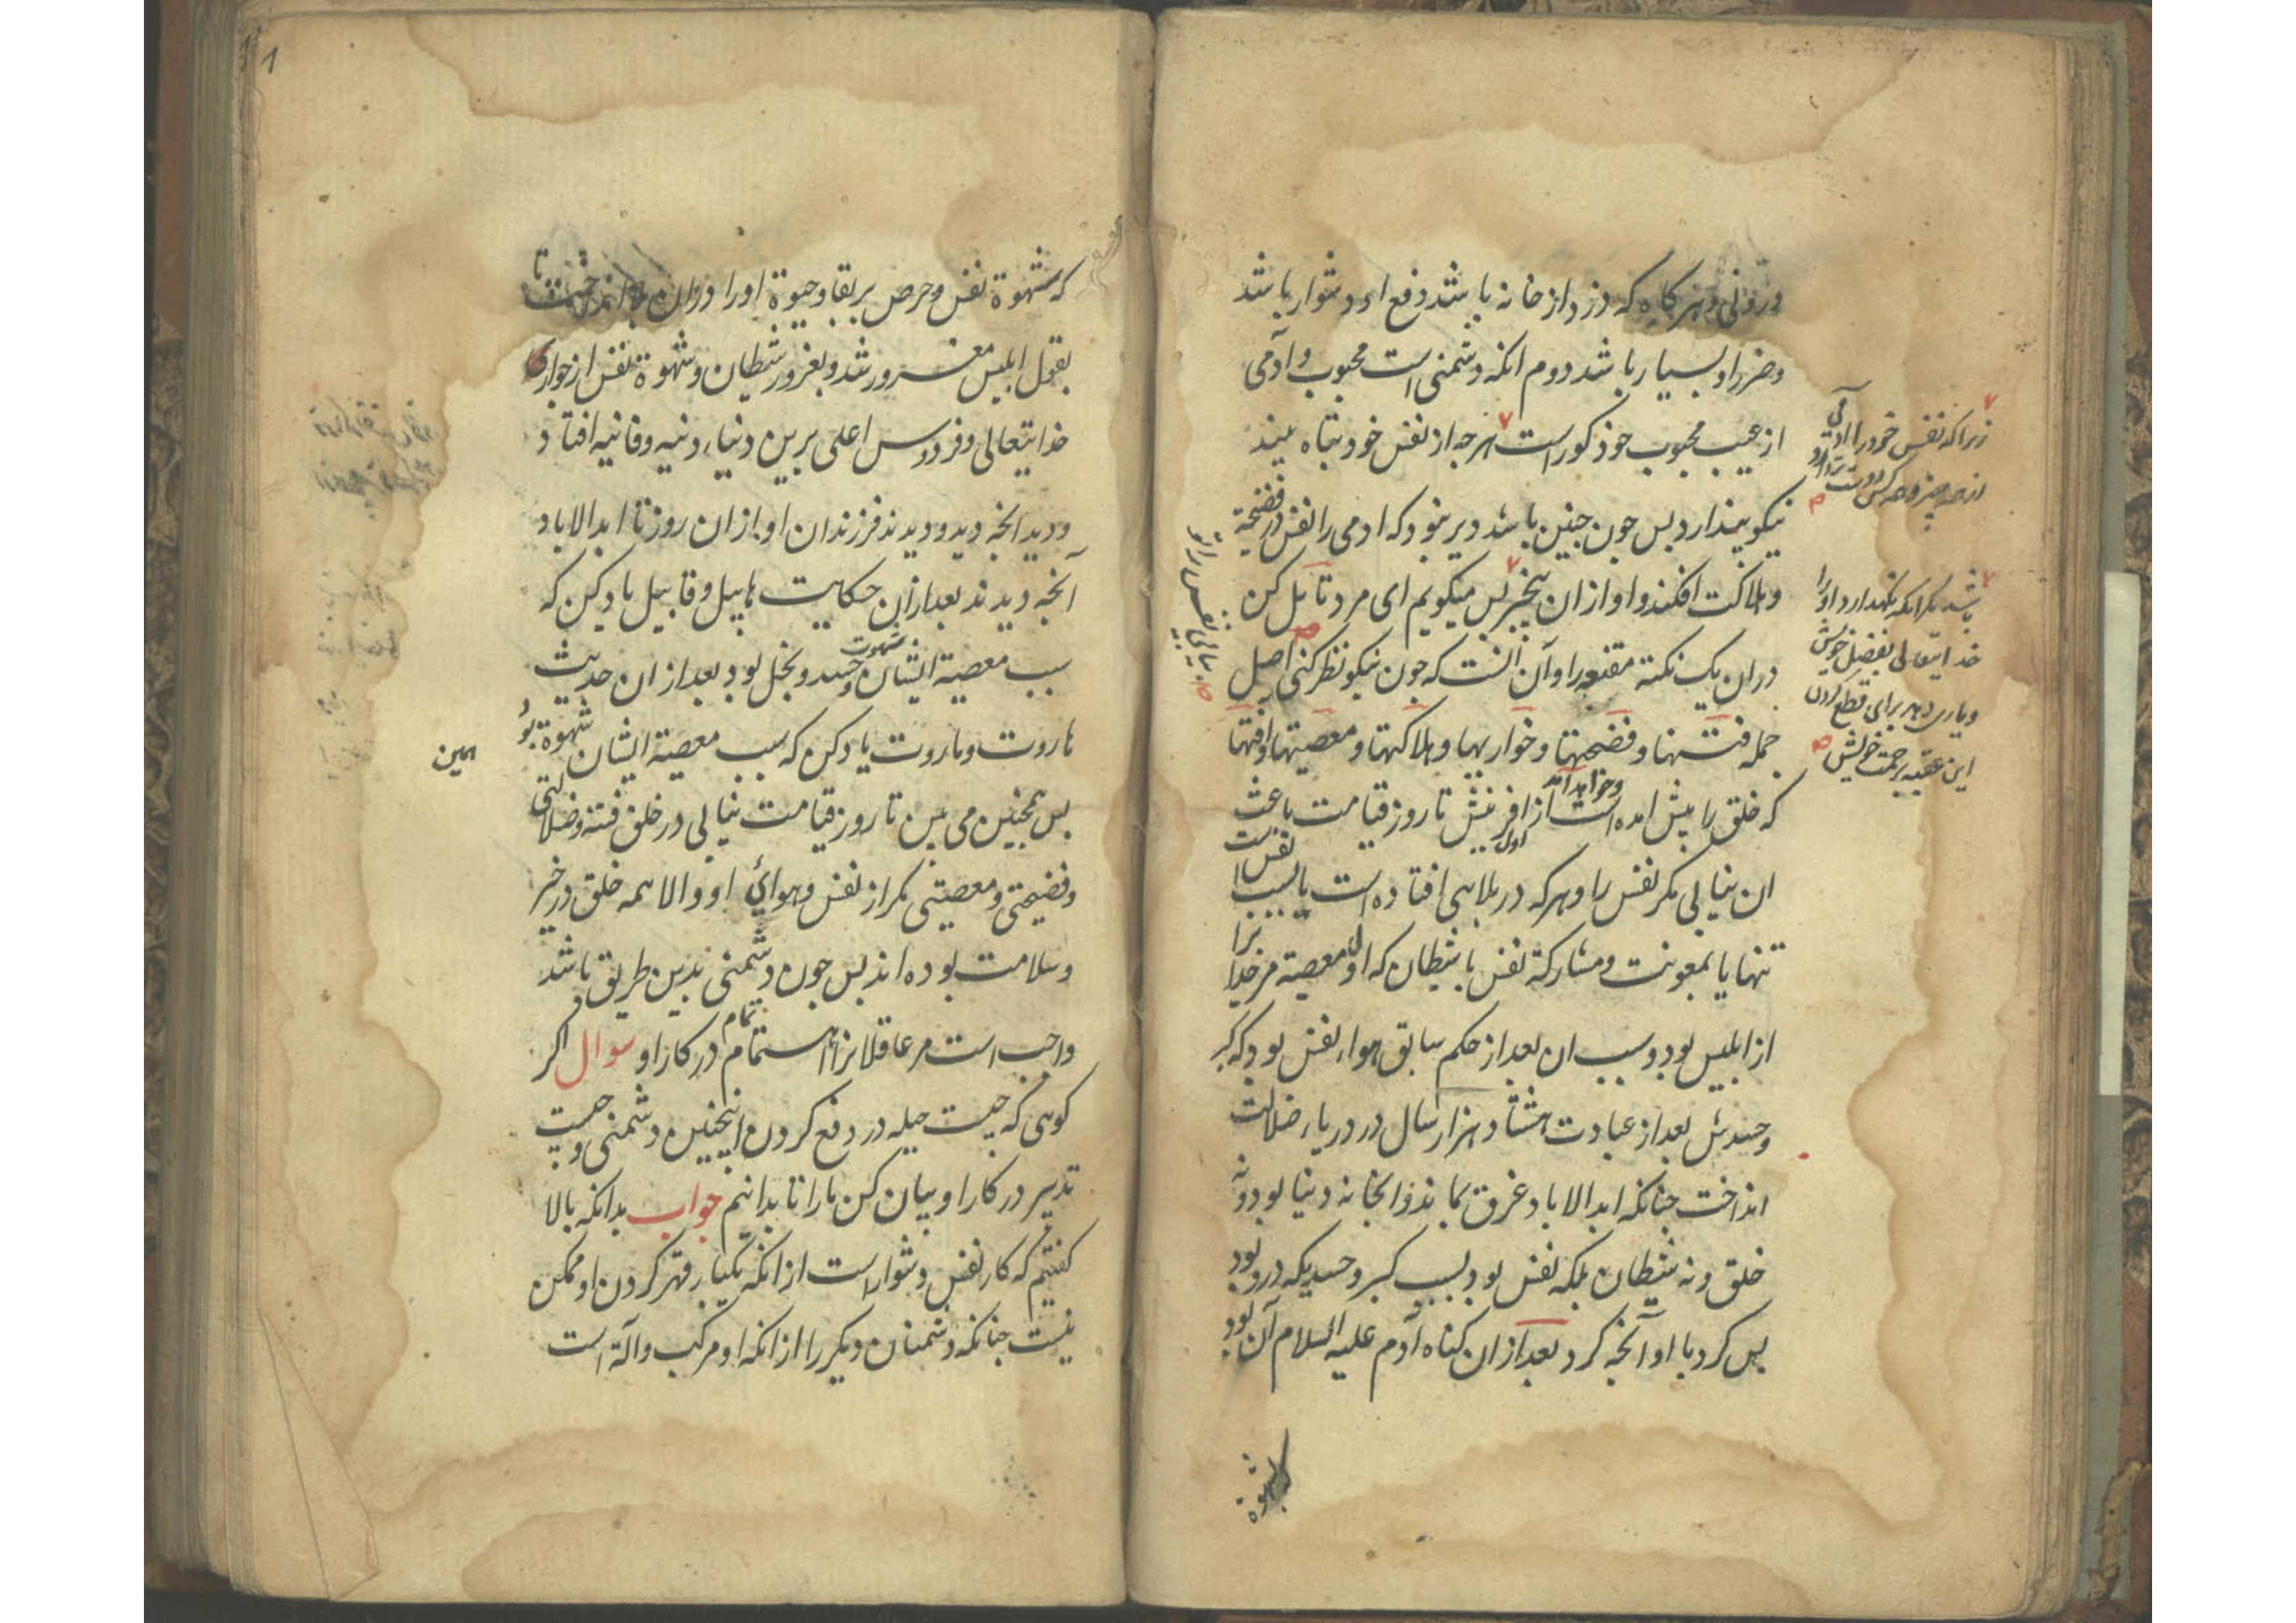 درونی و هر کاه که دزد از خانه باشد دفع او دشوار باشد
و ضرر او بسیار باشد دوم انکه دشمنی است محبوب و آدمی
از عیب محبوب خود کور است هرچه از نفس خود تباه بیند
نیکو پندارد بس جون جنین باشد دیر نبود که ادمی را نفس در فضیحة
و هلاکت افکند و او از ان بیخبر بس میکویم ای مرد تأمل کن
در ان یک نکته مقنعه را و آن انست که جون نیکو نظر کنی اصل
جمله فتنها و فضیحتها و خواریها و هلاکتها و معصیتها و افتها
که خلق را پیش امده است و خواهد آمد از اول افرینش تا روز قیامت باعث
ان نیابی مکر نفس را و هر که در بلایی افتاده است یا بسبب نفس است
تنها یا بمعونت و مشارکة نفس با شیطان که اول معصیة مر خدایرا
از ابلیس بود و سبب ان بعد از حکم سابق هواء نفس بود که کبر
و حسدش بعد از عبادت هشتاد هزار سال در دریاء ضلالت
انداخت جنانکه ابد الاباد غرق بماند و انجا نه دنیا بود و نه
خلق و نه شیطان بلکه نفس بود بسبب کبر و حسدیکه درو بود
بس کرد با او آنجه کرد بعد از ان کناه آدم علیه السلام آن بود
زیرا که نفس خود را آدمی
از همه چیز و همه کس دوست تر دارد
باشد مکر انکه نکهدارد او را
خدایتعالی بفضل خویش
و یاری دهد برای قطع کردن
این عقبه برحمت خویش
بشهوة
که شهوة نفس و حرص بر بقا و حیوة او را در ان انداخت تا
بقول ابلیس مغرور شد و بغرور شیطان و شهوة نفس از جوار
خدایتعالی و فردوس اعلی برین دنیاء دنیه و فانیه افتاد
و دید انجه دید و دیدند فرزندان او از ان روز تا ابد الاباد
آنجه دیدند بعد از ان حکایت هابیل و قابیل یاد کن که
سبب معصیة ایشان شهوت و حسد و بخل بود بعد از ان حدیث
هاروت و ماروت یاد کن که سبب معصیة ایشان شهوة بود
همین
بس همجنین می بین تا روز قیامت نیابی در خلق فتنه و ضلالتی
و فضیحتی و معصیتی مکر از نفس و هوای او و الا همه خلق در خیر
و سلامت بوده اند بس جون دشمنی بدین طریق باشد
واجب است مر عاقلانرا اهتمام تمام در کار او سوال اکر
کوئی که جیست حیله در دفع کردن اینجنین دشمنی و جیست
تدبیر در کار او بیان کن ما را تا بدانیم جواب بدانکه بالا
کفتیم که کار نفس دشوار است از انکه بیکبار قهر کردن او ممکن
نیست جنانکه دشمنان دیکر را از انکه او مرکب و آلة است